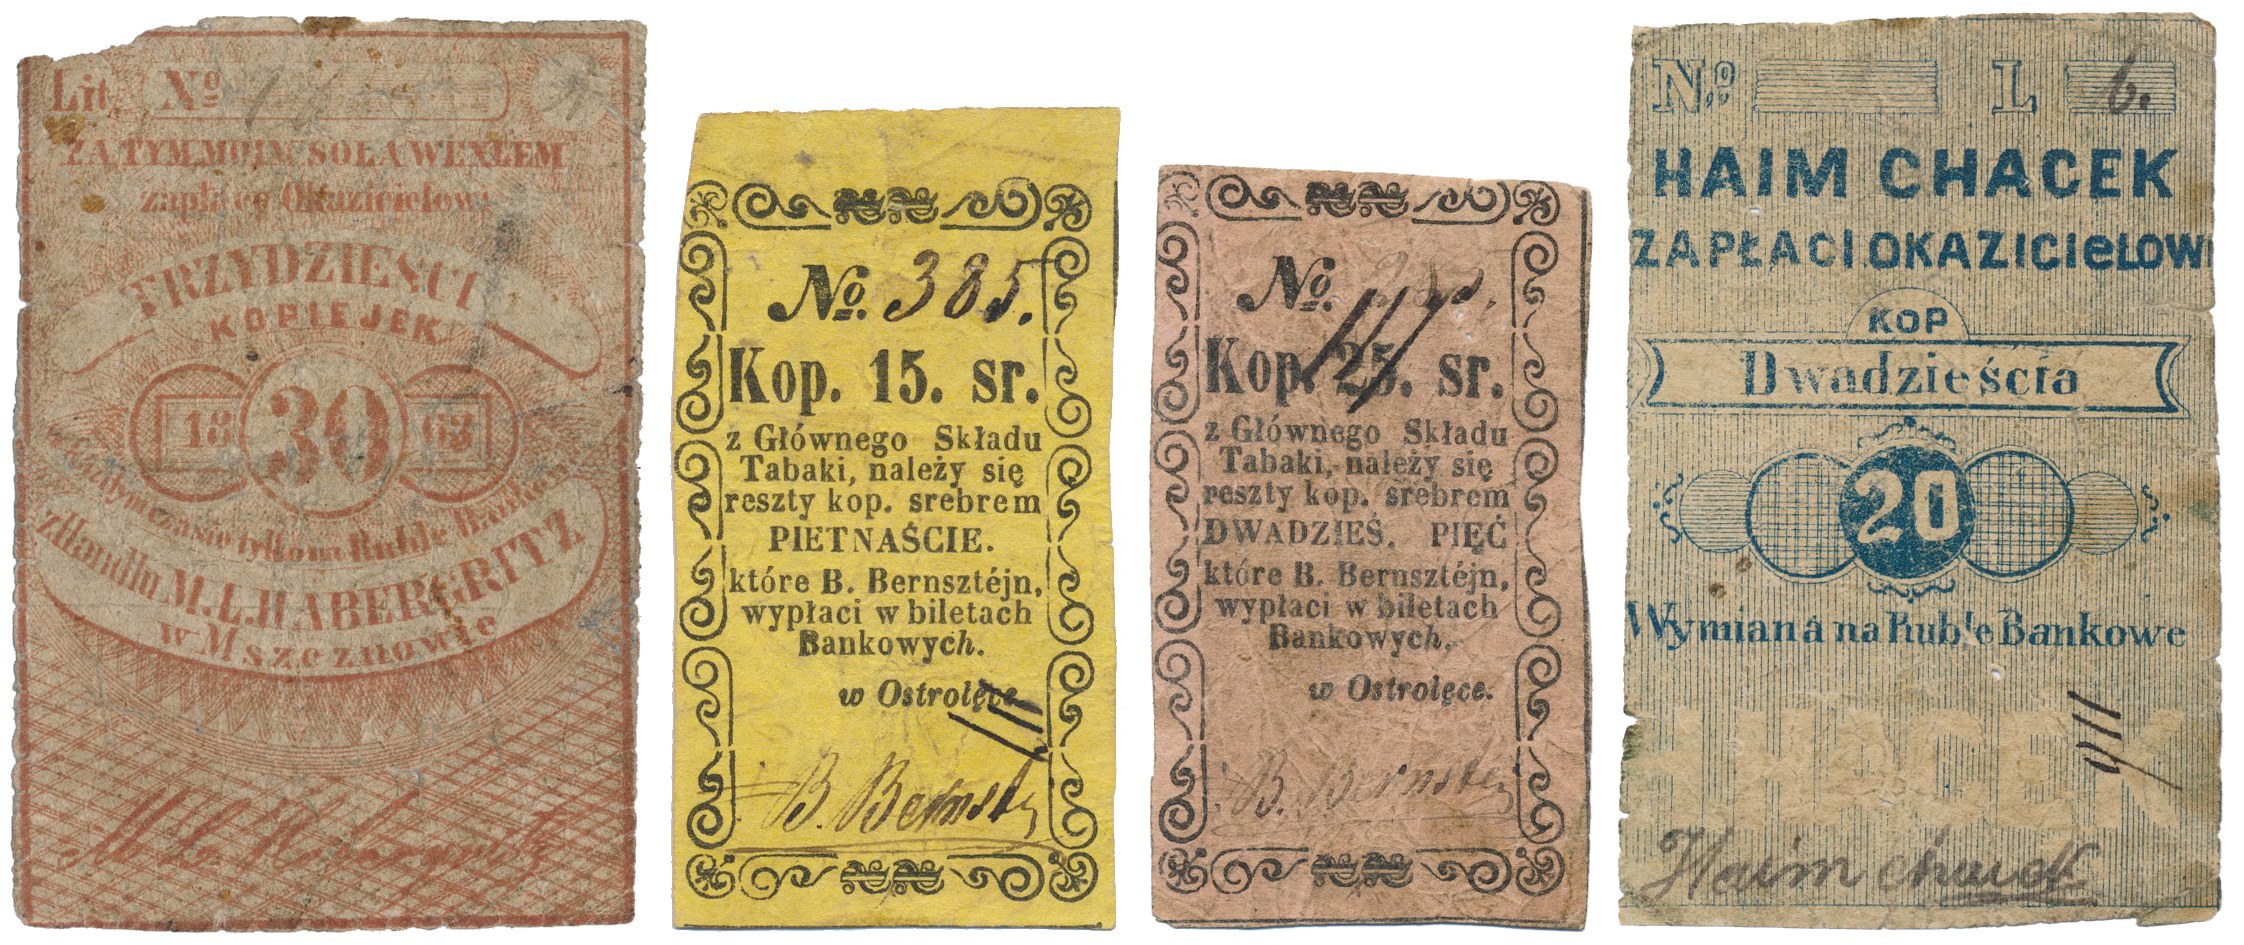 Lit. No
ZA TYM MOIM SOLA WEXLEM
zapłacę Okazicielowi
TRZYDZIEŚCI
KOPIEJEK
18 30 63
tylko na Ruble
z Handlu M. L. HABERGRITZ
w Mszcznowie
No. 385.
Kop. 15. sr.
z Głównego Składu
Tabaki, należy się
reszty kop. srebrem
PIETNAŚCIE.
które B. Bernsztéjn,
wypłaci w biletach
Bankowych.
w Ostrolęce
B. Bernste
No.
Kop. 25. sr.
z Głównego Składu
Tabaki, należy się
reszty kop. srebrem
DWADZIEŚ. PIĘĆ
które B. Bernsztéjn,
wypłaci w biletach
Bankowych.
w Ostrolęce.
B. Bernste
No L 6.
HAIM CHACEK
ZAPŁACI OKAZICIeLOWI
KOP
Dwadzieścia
20
Wymiana na Ruble Bankowe
Haim chacek